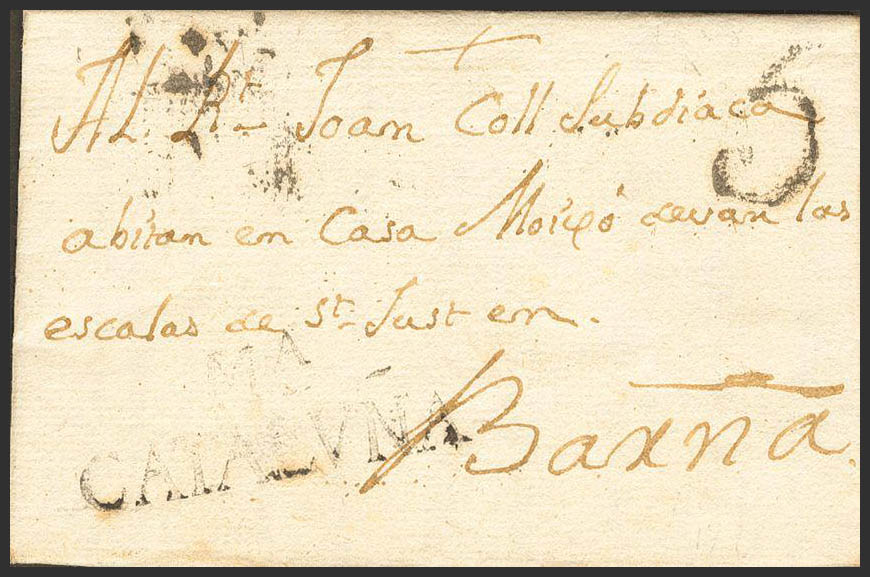 Al Rt. Joan Coll Subdiaca
5
abitan en Casa Moixó devan las
escalas de St. Just en.
MA
CATALVÑA
Barna